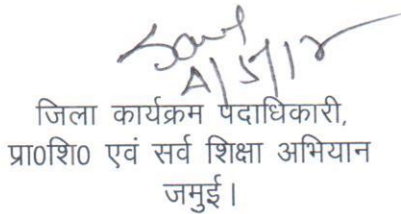 जिला कार्यक्रम पदाधिकारी,
प्रा0शि0 एवं सर्व शिक्षा अभियान
जमुई।